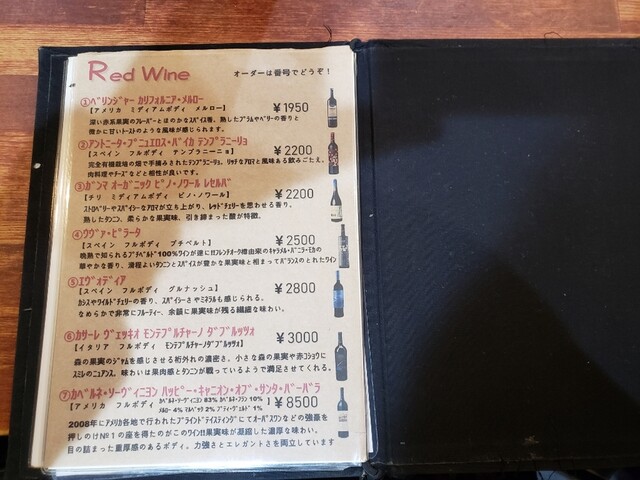 Red Wine
オーダーは番号でどうぞ！
①ﾍﾞﾘﾝｼﾞｬｰ ｶﾘﾌｫﾙﾆｱ・ﾒﾙﾛｰ
【アメリカ ミディアムボディ メルロー】 ¥1950
深い赤系果実のﾌﾚｰﾊﾞｰとほのかなｽﾊﾟｲｽ香。熟したﾌﾟﾗﾑやﾍﾞﾘｰの香りと
微かに甘いﾄｰｽﾄのような風味が感じられます。
②ｱﾝﾄﾆｰﾀ・ﾌﾟﾆｭｴﾛｽ・ﾊﾞｲｶ ﾃﾝﾌﾟﾗﾆｰﾘｮ
【スペイン フルボディ テンプラニーニョ】 ¥2200
完全有機栽培の畑で手摘みされたﾃﾝﾌﾟﾗﾆｰﾘｮ。ﾘｯﾁなｱﾛﾏと風味ある飲みごたえ。
肉料理やﾁｰｽﾞなどと相性が良いです。
③ｶﾞﾝﾏ ｵｰｶﾞﾆｯｸ ﾋﾟﾉ・ﾉﾜｰﾙ ﾚｾﾙﾊﾞ
【チリ ミディアムボディ ピノ・ノワール】 ¥2200
ｽﾄﾛﾍﾞﾘｰやｽﾊﾟｲｼｰなｱﾛﾏが立ち上がり、ﾚｯﾄﾞﾁｪﾘｰを思わせる香り。
熟したﾀﾝﾆﾝ、柔らかな果実味、引き締まった酸が特徴。
④ｳｳﾞｧ・ﾋﾟﾗｰﾀ
【スペイン フルボディ プチベルト】 ¥2500
晩熟で知られるﾌﾟﾁﾍﾞﾙﾄﾞ100%ワインが遂に!!ﾌﾚﾝﾁｵｰｸ樽由来のｷｬﾗﾒﾙ・ﾊﾞﾆﾗ・ﾓｶの
華やかな香り、滑程よいﾀﾝﾆﾝとｽﾊﾟｲｽが豊かな果実味と相まってﾊﾞﾗﾝｽのとれたﾜｲﾝ
⑤ｴｳﾞｫﾃﾞｨｱ
【スペイン フルボディ グルナッシュ】 ¥2800
ｶｼｽやﾜｲﾙﾄﾞﾁｪﾘｰの香り、ｽﾊﾟｲｼｰさやﾐﾈﾗﾙも感じられる。
なめらかで非常にﾌﾙｰﾃｨｰ、余韻に果実味が残る繊細な味わい。
⑥ｶｻｰﾚ ｳﾞｪｯｷｵ ﾓﾝﾃﾌﾟﾙﾁｬｰﾉ ﾀﾞﾌﾞﾙｯﾂｫ
【イタリア フルボディ ﾓﾝﾃﾌﾟﾙﾁｬｰﾉﾀﾞﾌﾞﾙｯﾂｫ】 ¥3000
森の果実のｼﾞｬﾑを感じさせる桁外れの濃密さ。小さな森の果実や赤ｺｼｮｳに
ｽﾐﾚのﾆｭｱﾝｽ。味わいは果肉感とﾀﾝﾆﾝが戦っているようで満足させてくれる。
⑦ｶﾍﾞﾙﾈ・ｿｰｳﾞｨﾆﾖﾝ ﾊｯﾋﾟｰ・ｷｬﾆｵﾝ・ｵﾌﾞ・ｻﾝﾀ・ﾊﾞｰﾊﾞﾗ
【アメリカ フルボディ ｶﾍﾞﾙﾈ・ｿｰｳﾞｨﾆﾖﾝ 83% ｶﾍﾞﾙﾈ・ﾌﾗﾝ 10%
ﾒﾙﾛｰ 4% ﾏﾙﾍﾞｯｸ 2% ﾌﾟﾃｨ・ｳﾞｪﾙﾄﾞ 1% 】 ¥8500
2008年にｱﾒﾘｶ各地で行われたﾌﾞﾗｲﾝﾄﾞﾃｲｽﾃｨﾝｸﾞにてｵｰﾊﾟｽﾜﾝなどの強豪を
押しのけNo1の座を得たのがこのﾜｲﾝ!!果実味が凝縮した濃厚な味わい。
目の詰まった重厚感のあるボディ。力強さとエレガントさを両立しています